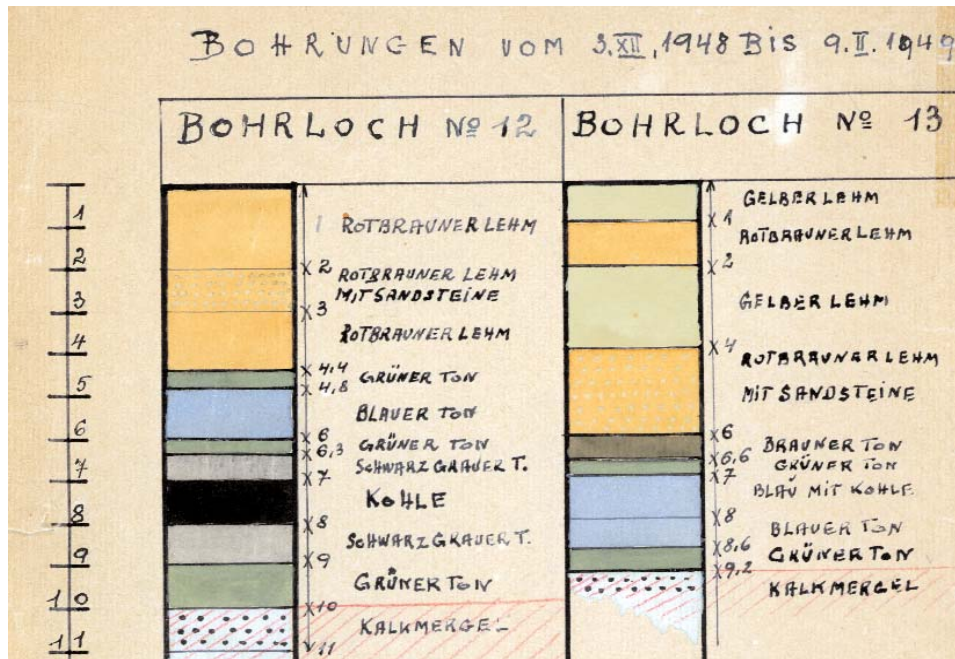 BOHRUNGEN VOM 3.XII.1948 BIS 9.II.1949
BOHRLOCH Nº 12
BOHRLOCH Nº 13
1
2
3
4
5
6
7
8
9
10
11
1 ROTBRAUNER LEHM
x2
ROTBRAUNER LEHM
MIT SANDSTEINE
x3
ROTBRAUNER LEHM
x4,4
GRÜNER TON
x4,8
BLAUER TON
x6
GRÜNER TON
x6,3
SCHWARZGRAUER T.
x7
KOHLE
x8
SCHWARZGRAUER T.
x9
GRÜNER TON
x10
KALKMERGEL
x11
GELBER LEHM
x1
ROTBRAUNER LEHM
x2
GELBER LEHM
x4
ROTBRAUNER LEHM
MIT SANDSTEINE
x6
BRAUNER TON
x6,6
GRÜNER TON
x7
BLAU MIT KOHLE
x8
BLAUER TON
x8,6
GRÜNER TON
x9,2
KALKMERGEL